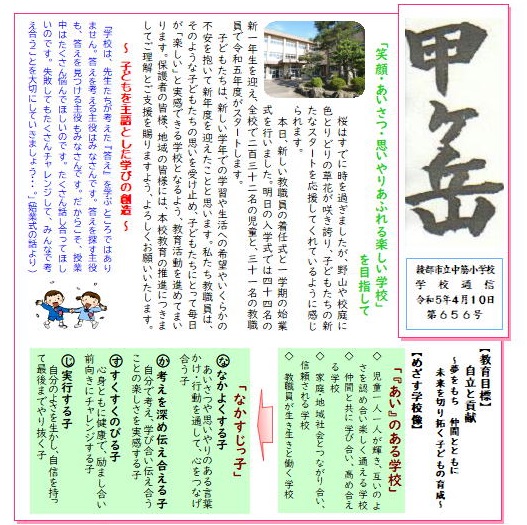 甲ヶ岳
綾部市立中筋小学校
学校通信
令和5年4月10日
第656号
「笑顔・あいさつ・思いやりあふれる楽しい学校」
を目指して
桜はすでに時を過ぎましたが、野山や校庭に
色とりどりの草花が咲き誇り、子どもたちの新
たなスタートを応援してくれているように感じ
られます。
本日、新しい教職員の着任式と一学期の始業
式を行いました。明日の入学式では四十四名の
新一年生を迎え、全校で二百三十一名の児童と、三十一名の教職
員で令和五年度がスタートします。
子どもたちは、新しい学年での学習や生活への希望やいくらかの
不安を抱いて新年度を迎えたことと思います。私たち教職員は、
そのような子どもたちの思いを受け止め、子どもたちにとって毎日
が「楽しい」と実感できる学校となるよう、教育活動を進めてまい
ります。保護者の皆様、地域の皆様には、本校教育の推進につきま
してご理解とご支援を賜りますよう、よろしくお願いいたします。
～ 子どもを主語とした学びの創造 ～
「学校は、先生たちが考えた『答え』を学ぶところではあり
ません。答えを考える主役はみなさんです。答えを探す主役
も、答えを見つける主役もみなさんです。だからこそ、授業
中はたくさん悩んでほしいのです。たくさん話し合ってほし
いのです。失敗してもたくさんチャレンジして、みんなで考
え合うことを大切にしていきましょう・・・」(始業式の話より)
【教育目標】
自立と貢献
～夢をもち 仲間とともに
未来を切り拓く子どもの育成～
【めざす学校像】
「『あい』のある学校」
◇ 児童一人一人が輝き、互いのよ
さを認め合い楽しく通える学校
◇ 仲間と共に学び合い、高め合え
る学校
◇ 家庭・地域社会とつながり合い、
信頼される学校
◇ 教職員が生き生きと働く学校
「なかすじっ子」
な なかよくする子
あいさつや思いやりのある言葉
かけ・行動を通して、心をつなげ
合う子
か 考えを深め伝え合える子
自分で考え、学び合い伝え合う
ことの楽しさを実感する子
す すくすくのびる子
心身ともに健康で、励まし合い
前向きにチャレンジする子
じ 実行する子
自分のよさを生かし、自信を持っ
て最後までやり抜く子